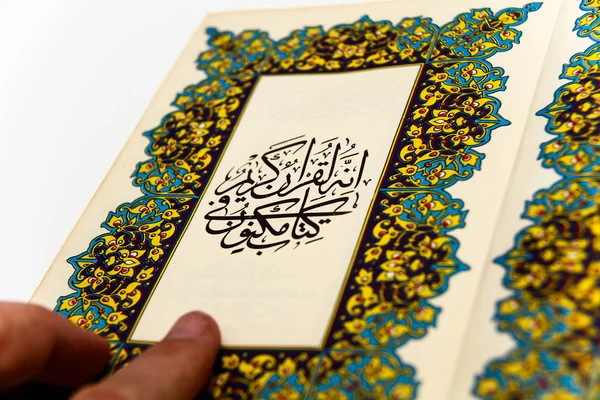 إنَّهُ لَقُرْآنٌ كَرِيمٌ
فِي كِتَابٍ مَكْنُونٍ